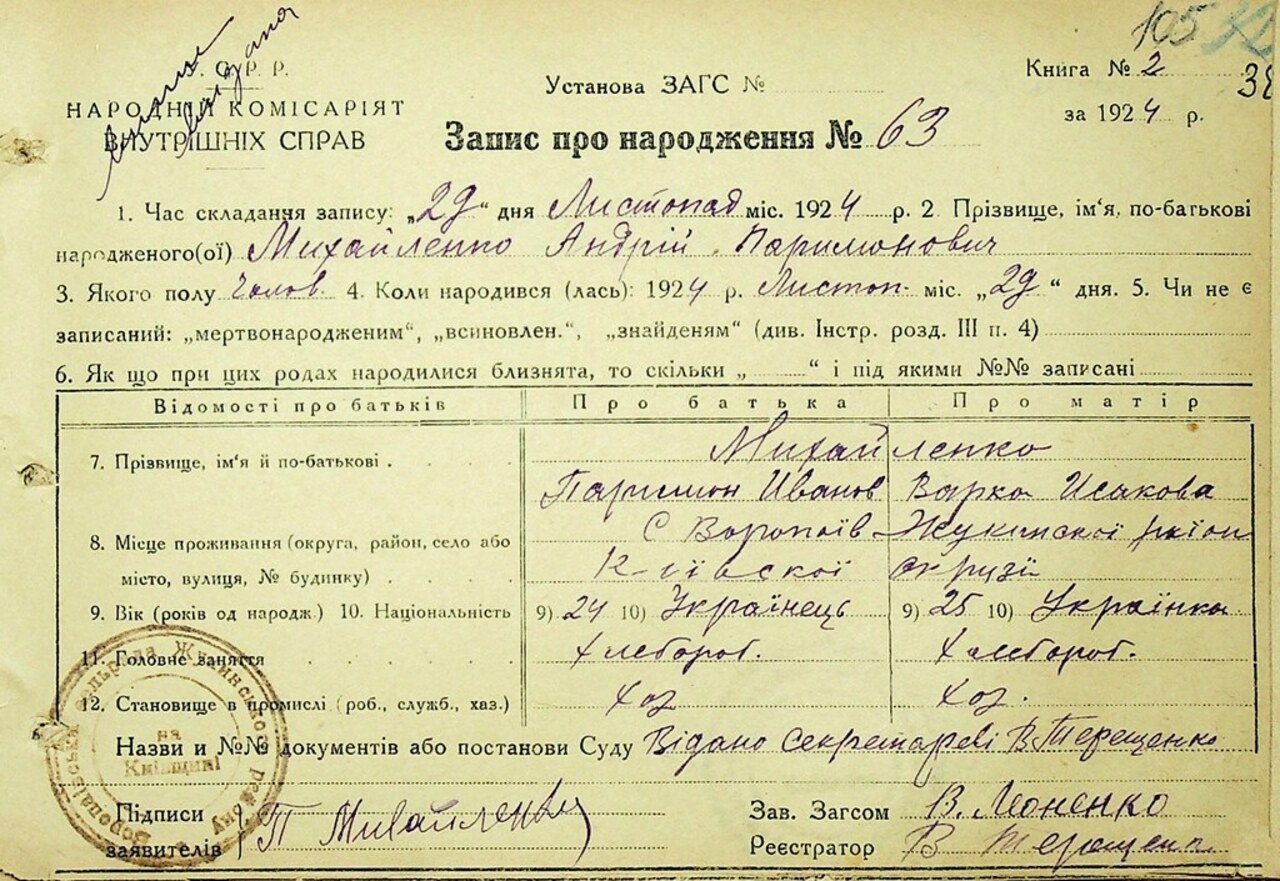 105 32
У. С. Р. Р.
НАРОДНІЙ КОМІСАРІЯТ
ВНУТРІШНІХ СПРАВ
Установа ЗАГС №
Запис про народження № 63
Книга № 2 38
за 1924 р.
1. Час складання запису: „29“ дня Листопад міс. 1924 р. 2. Прізвище, ім'я, по-батькові
народженого(ої) Михайленко Андрій Паримонович
3. Якого полу Чолов. 4. Коли народився (лась): 1924 р. Листоп. міс. „29“ дня. 5. Чи не є
записаний: „мертвонародженим“, „всиновлен.“, „знайденям“ (див. Інстр. розд. III п. 4)
6. Як що при цих родах народилися близнята, то скільки „ “ і під якими №№ записані
Відомості про батьків Про батька Про матір
7. Прізвище, ім'я й по-батькові . Михайленко
Паримон Иванов Варка Исакова
8. Місце проживання (округа, район, село або С Воропаїв Жукинскої район
місто, вулиця, № будинку) К-ієвскої окрузі
9. Вік (років од народж.) 10. Національність 9) 24 10) Українець 9) 25 10) Українка
11. Головне заняття Хлебороб. Хлебороб.
12. Становище в промислі (роб., служб., хаз.) Хоз Хоз.
Назви и №№ документів або постанови Суду Відано секретареві В. Терещенко
Воропаївська сільрада Жукинського району
на
Київщині
Підписи
заявителів П Михайленко
Зав. Загсом В. Леоненко
Реєстратор В Терещенк.